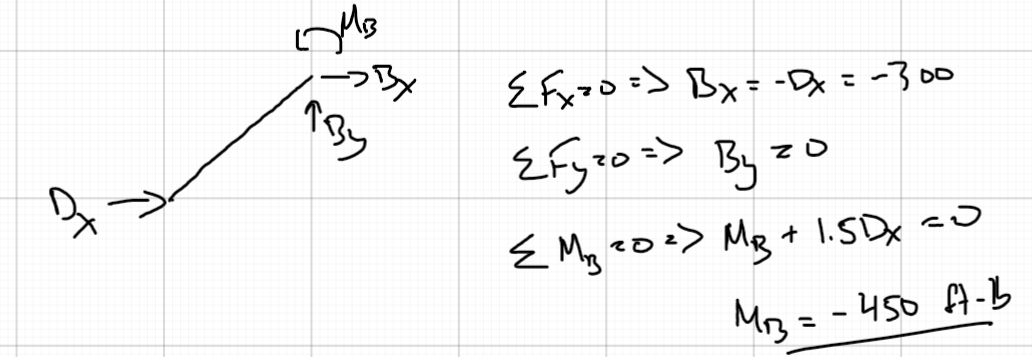 M_B
B_x
B_y
D_x
ΣF_x=0 => B_x = -D_x = -300
ΣF_y=0 => B_y = 0
ΣM_B=0 => M_B + 1.5D_x = 0
M_B = -450 ft-lb